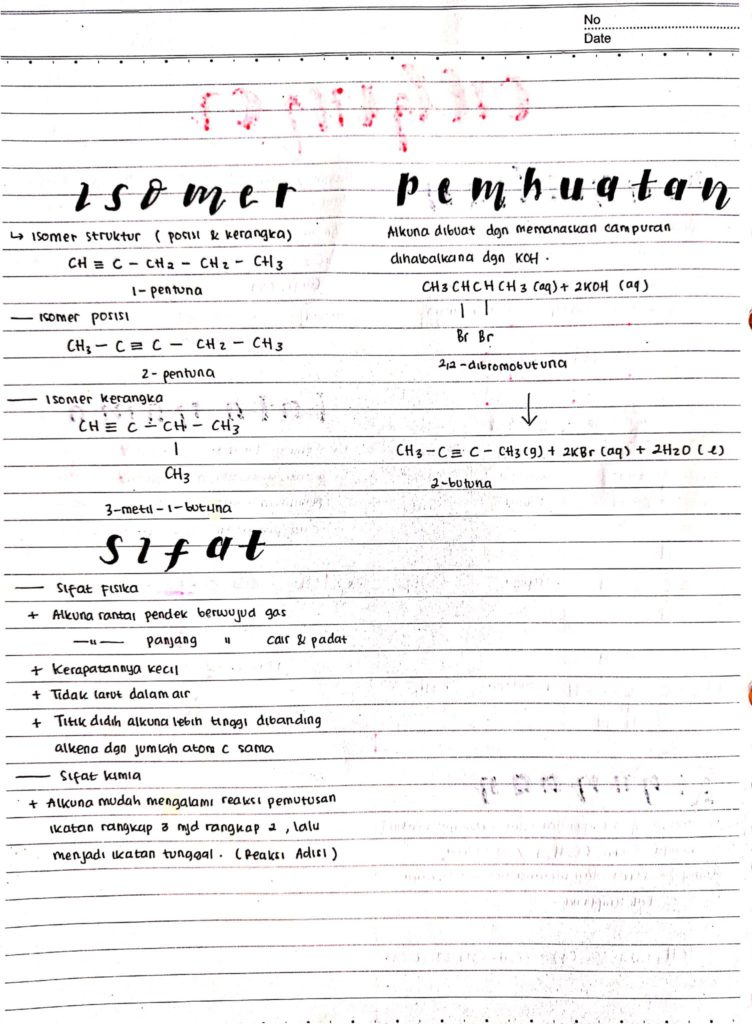 No
Date
Isomer
↳ Isomer struktur ( posisi & kerangka)
CH ≡ C - CH2 - CH2 - CH3
1 - pentuna
— Isomer posisi
CH3 - C ≡ C - CH2 - CH3
2 - pentuna
— Isomer kerangka
CH ≡ C - CH - CH3
|
CH3
3-metil-1-butuna
Sifat
— Sifat Fisika
+ Alkuna rantai pendek berwujud gas
—〃— panjang 〃 cair & padat
+ Kerapatannya kecil
+ Tidak larut dalam air
+ Titik didih alkuna lebih tinggi dibanding
alkena dgn jumlah atom C sama
— Sifat kimia
+ Alkuna mudah mengalami reaksi pemutusan
ikatan rangkap 3 mjd rangkap 2 , lalu
menjadi ikatan tunggal. (Reaksi Adisi)
Pembuatan
Alkuna dibuat dgn memanaskan campuran
dihaloalkana dgn KOH.
CH3 CHCH CH3 (aq) + 2KOH (aq)
| |
Br Br
2,2-dibromobutuna
↓
CH3 - C ≡ C - CH3 (g) + 2KBr (aq) + 2H2O (l)
2-butuna